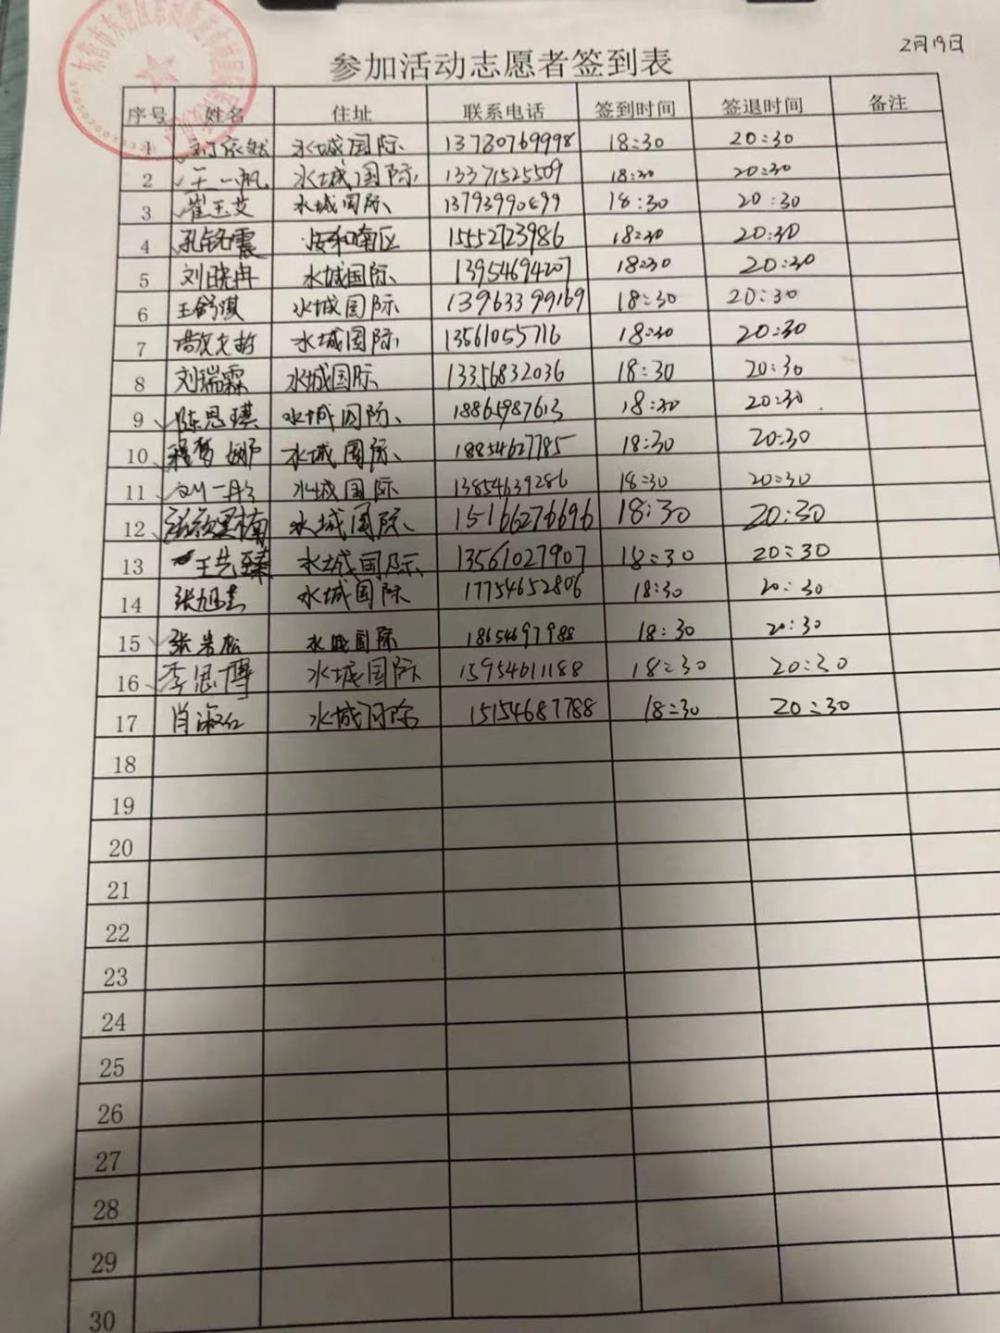 2月19日
参加活动志愿者签到表
序号 姓名 住址 联系电话 签到时间 签退时间 备注
1 刘依然 水城国际 13780769998 18:30 20:30
2 王一帆 水城国际 13371525509 18:30 20:30
3 崔玉艾 水城国际 13793990899 18:30 20:30
4 孔铭震 安和南区 15552723986 18:30 20:30
5 刘晓冉 水城国际 13954694207 18:30 20:30
6 王舒淇 水城国际 13963399169 18:30 20:30
7 水城国际 13561055716 18:30 20:30
8 刘瑞霖 水城国际 13356832036 18:30 20:30
9 陈思琪 水城国际 18865987613 18:30 20:30
10 程梦娜 水城国际 18854627785 18:30 20:30
11 刘一彤 水城国际 13854639286 18:30 20:30
12 水城国际 15166276696 18:30 20:30
13 王艺臻 水城国际 13561027907 18:30 20:30
14 张旭 水城国际 17754652806 18:30 20:30
15 张岩松 水城国际 1865697988 18:30 20:30
16 李思博 水城国际 15954611188 18:30 20:30
17 肖淑红 水城国际 15154687788 18:30 20:30
18
19
20
21
22
23
24
25
26
27
28
29
30